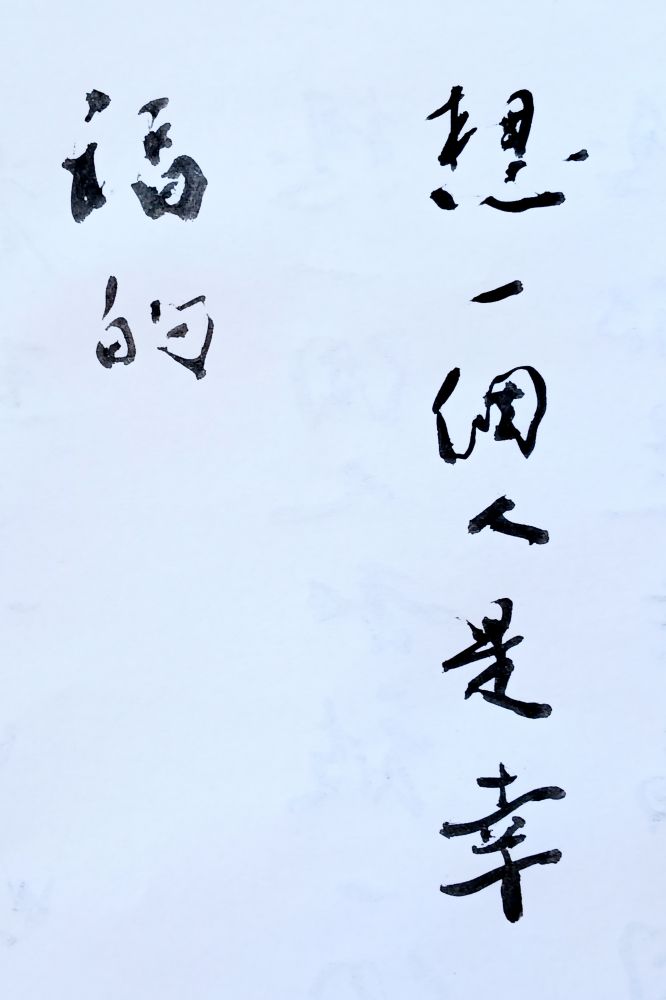 想一個人是幸
福的